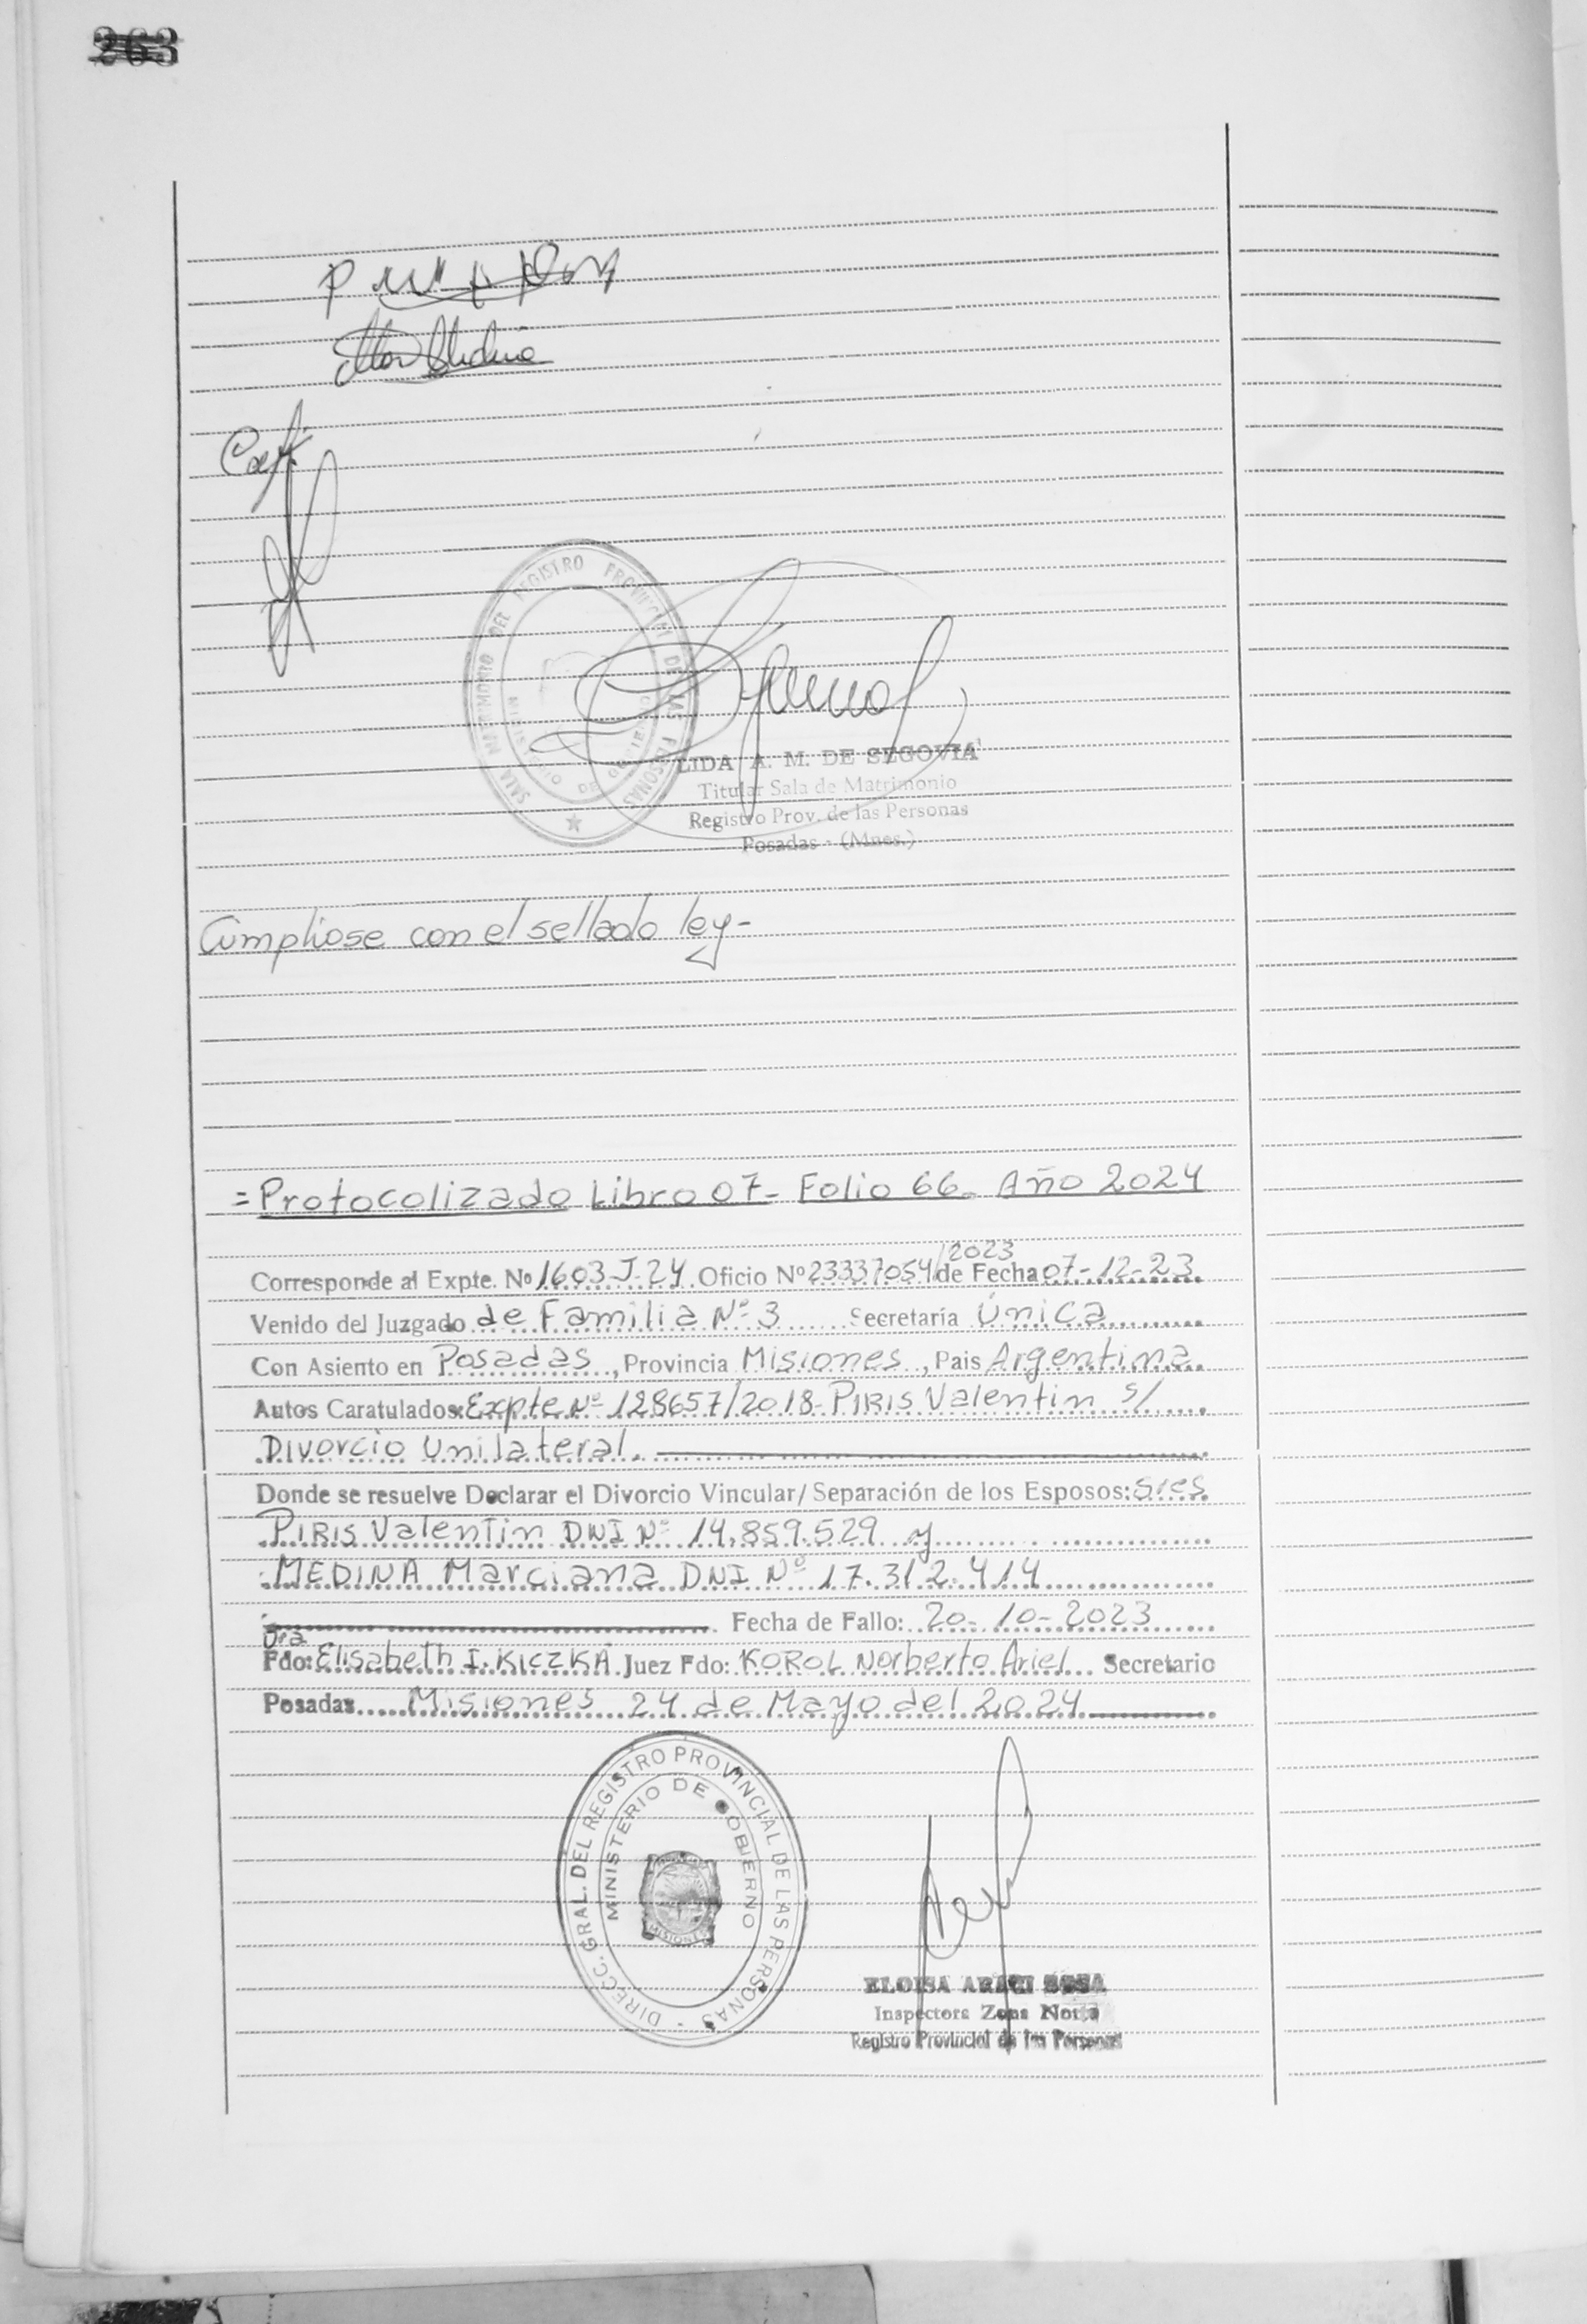 263
SALA MATRIMONIO DEL REGISTRO PROVINCIAL DE LAS PERSONAS
MINISTERIO DE GOBIERNO
LIDA A. M. DE SEGOVIA
Titular Sala de Matrimonio
Registro Prov. de las Personas
Posadas - (Mnes.)
Cumpliose con el sellado ley-
=Protocolizado Libro 07- Folio 66. Año 2024
Corresponde al Expte. Nº 1603-J-24. Oficio Nº 23337054/2023 de Fecha 07-12-23
Venido del Juzgado de Familia Nº 3 Secretaría Única
Con Asiento en Posadas, Provincia Misiones, Pais Argentina
Autos Caratulados: Expte Nº 128657/2018- PIRIS Valentin s/
Divorcio Unilateral.
Donde se resuelve Declarar el Divorcio Vincular/ Separación de los Esposos: Sres
PIRIS Valentin DNI Nº 14.859.529 y
MEDINA Marciana DNI Nº 17.312.414
Fecha de Fallo: 20-10-2023
Fdo: Dra Elisabeth I. KICZKA Juez Fdo: KOROL Norberto Ariel Secretario
Posadas Misiones 24 de Mayo del 2024
DIRECC. GRAL. DEL REGISTRO PROVINCIAL DE LAS PERSONAS -
MINISTERIO DE GOBIERNO
MISIONES
ELOISA ARACI SOSA
Inspectora Zona Norte
Registro Provincial de las Personas